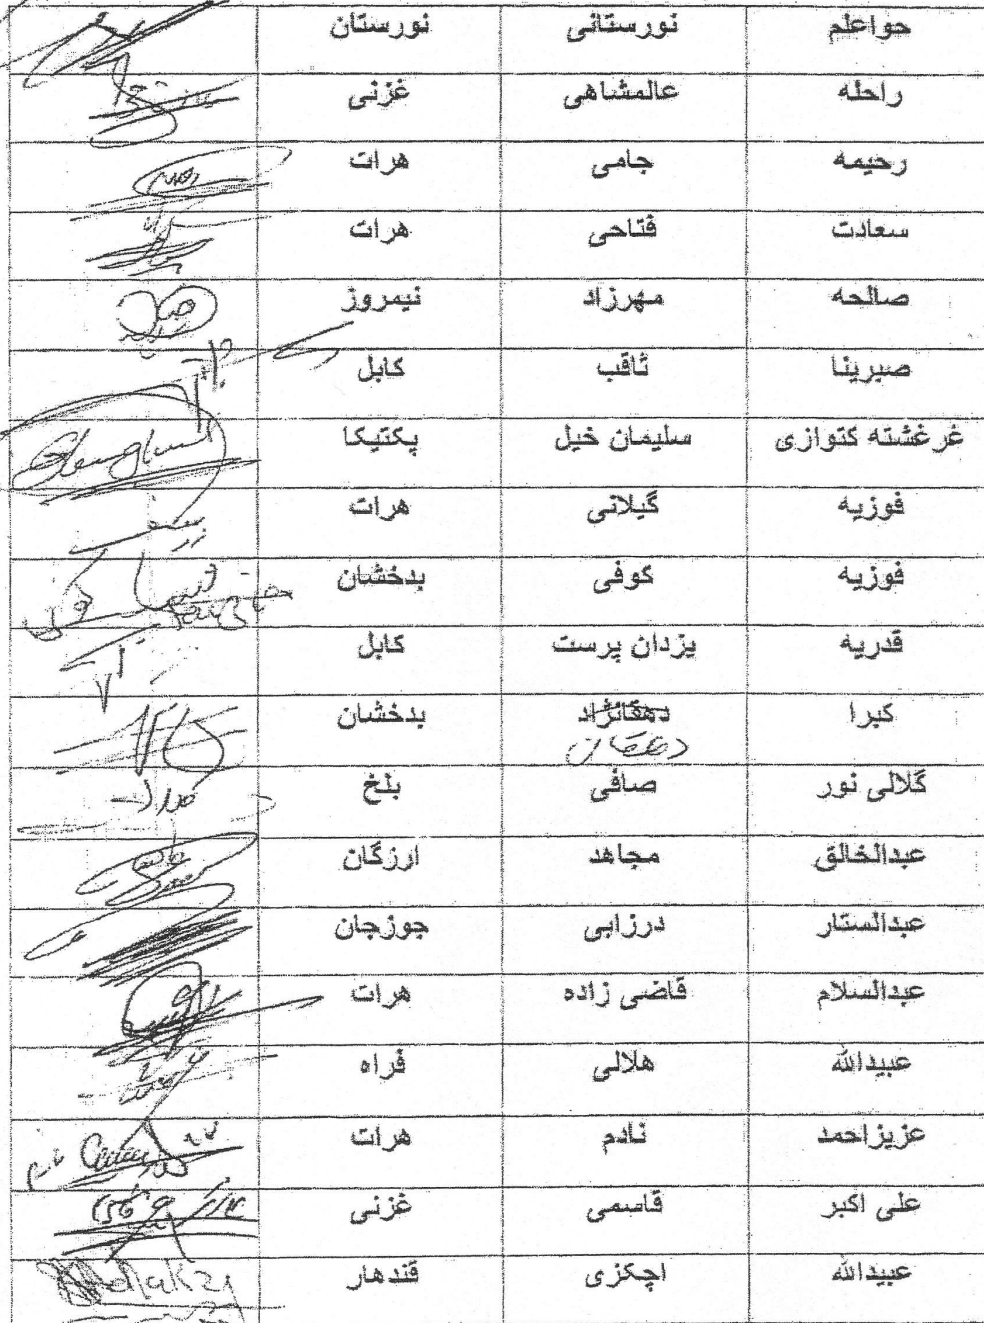 حواعلم نورستانی نورستان
راحله عالمشاهی غزنی
رحیمه جامی هرات
سعادت فتاحی هرات
صالحه مهرزاد نیمروز
صبرینا ثاقب کابل
غرغشته کتوازی سلیمان خیل پکتیکا
فوزیه گیلانی هرات
فوزیه کوفی بدخشان
قدریه یزدان پرست کابل
کبرا دهقانژاد بدخشان
دهقان
گلالی نور صافی بلخ
عبدالخالق مجاهد ارزگان
عبدالستار درزابی جوزجان
عبدالسلام قاضی زاده هرات
عبیدالله هلالی فراه
عزیزاحمد نادم هرات
علی اکبر قاسمی غزنی
عبیدالله اچکزی قندهار